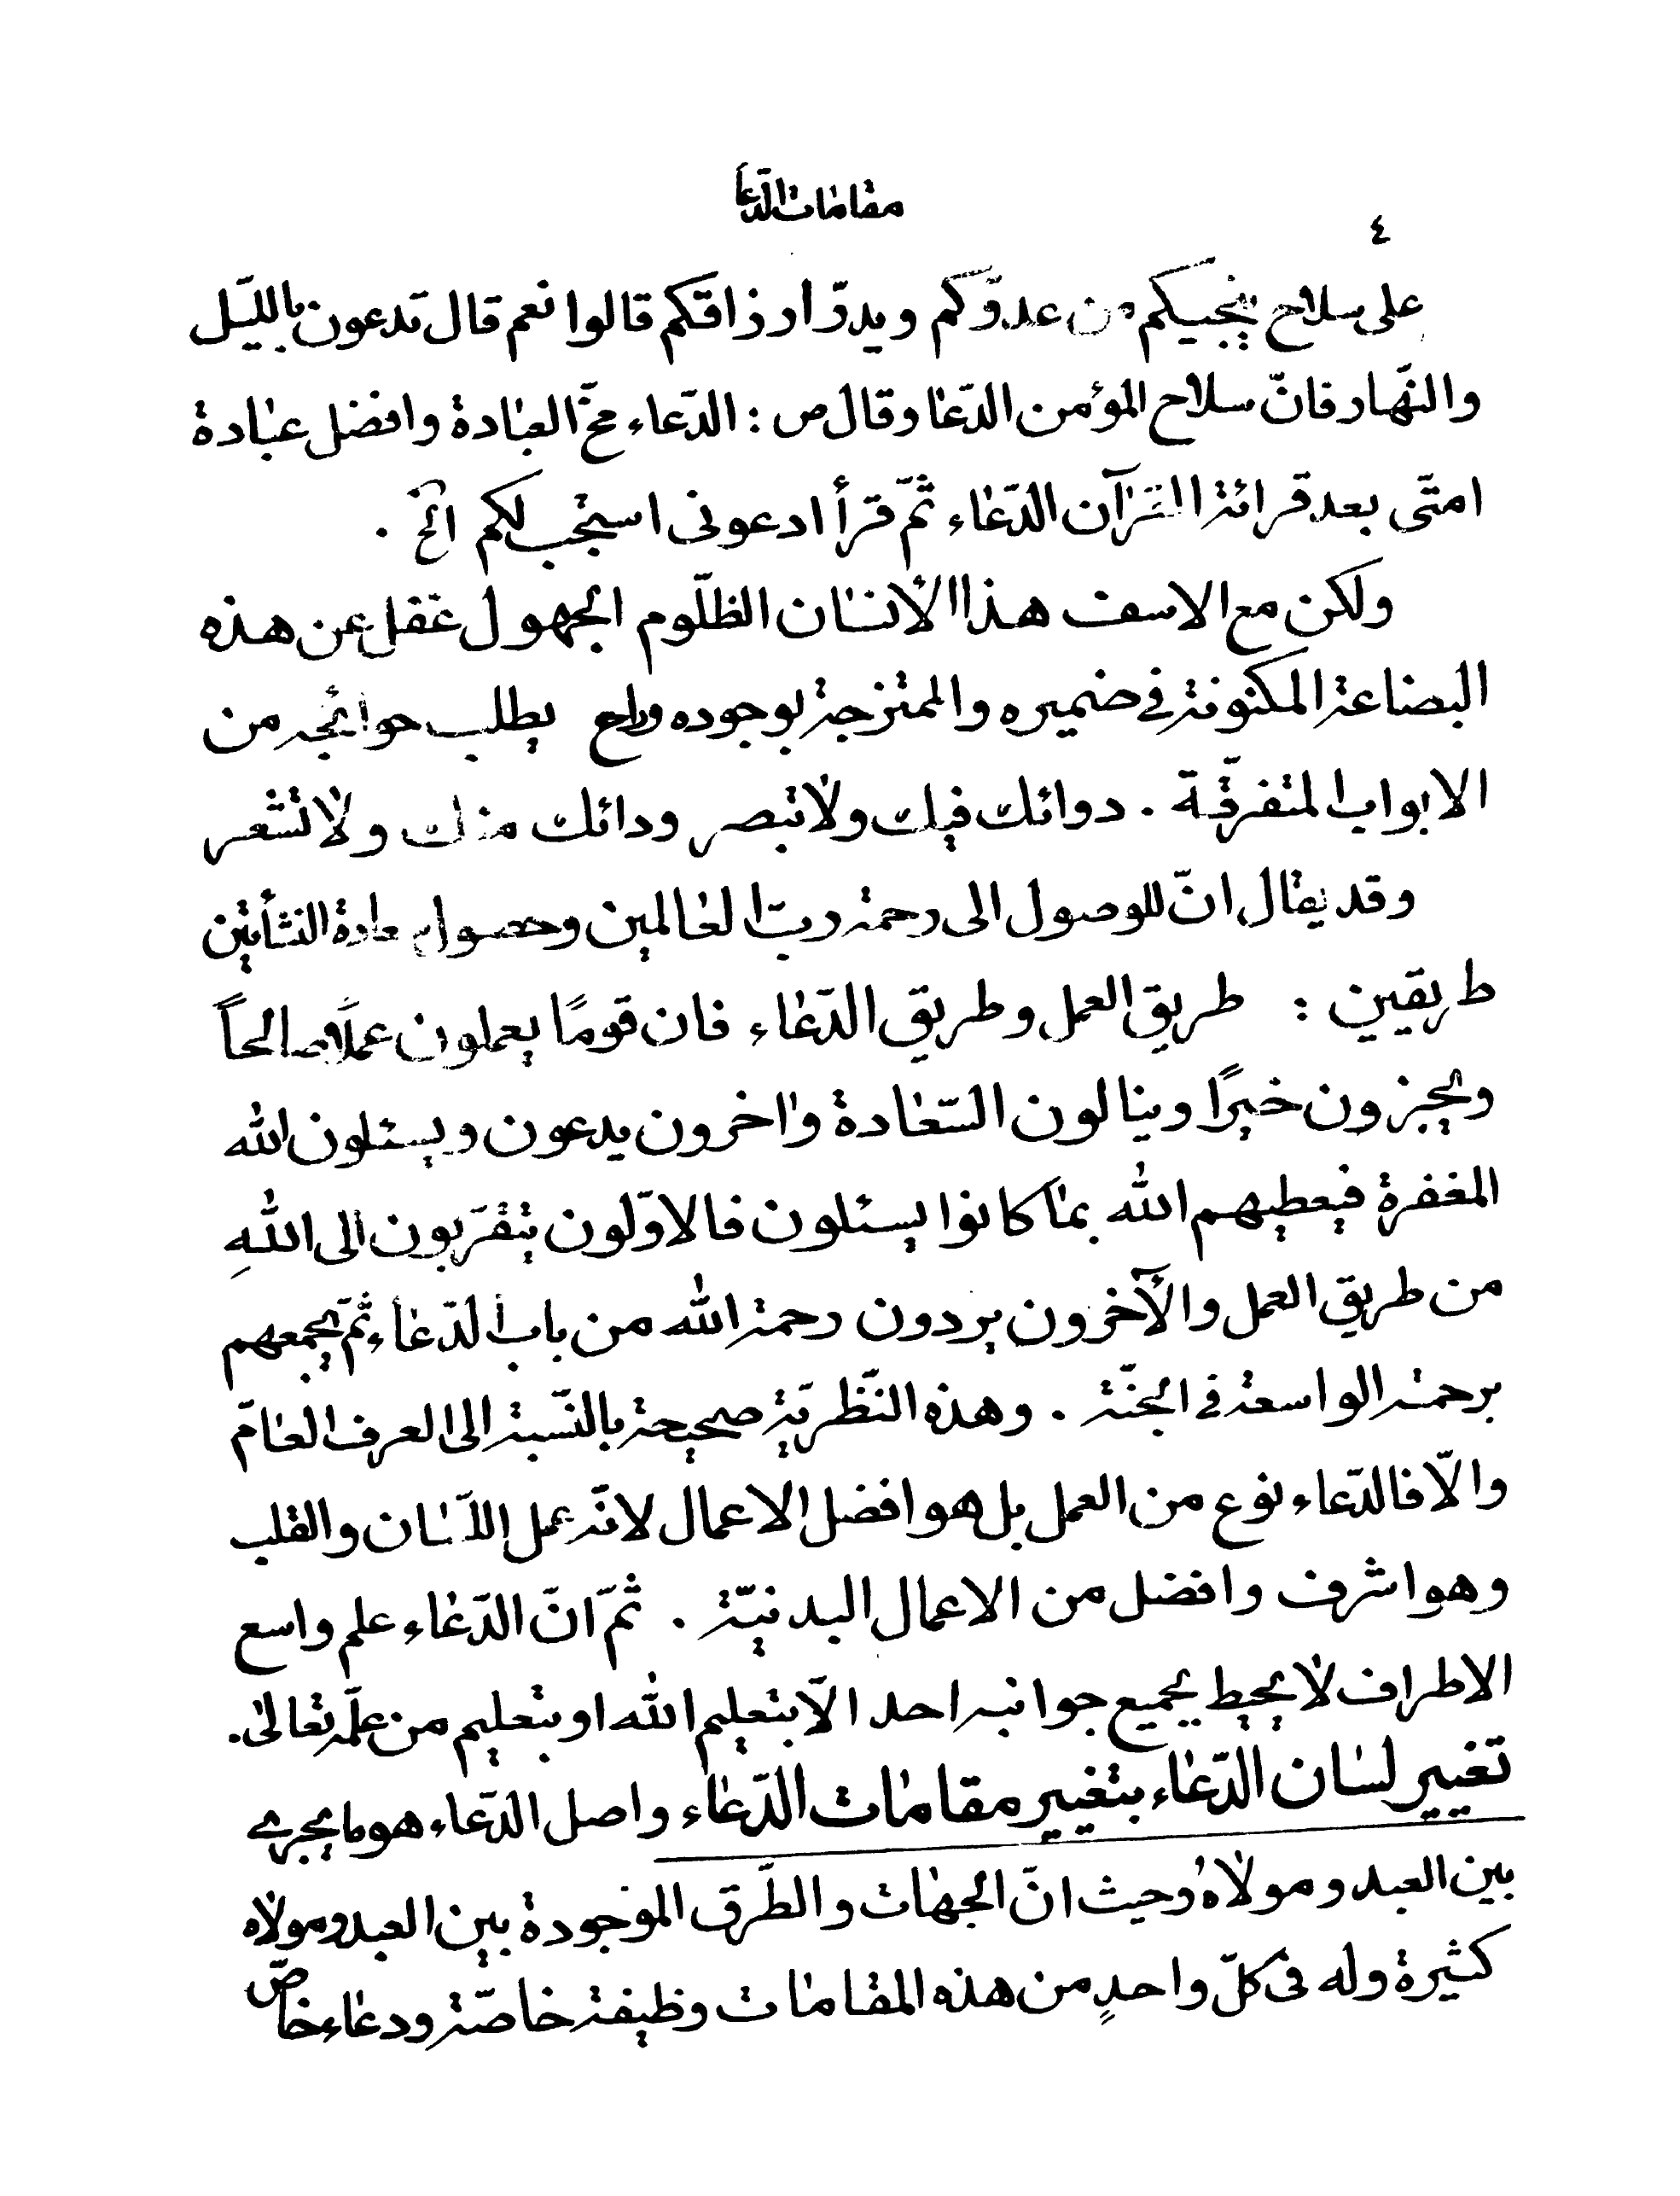 مقامات الدّعا
٤
على سلاح ينجيكم من عدوّكم ويدرّ ارزاقكم قالوا نعم قال تدعون بالليّل
والنّهار فانّ سلاح المؤمن الدّعا وقال ص : الدّعاء مخّ العبادة وافضل عبادة
امتّى بعد قرائة القرآن الدّعاء ثمّ قرأ ادعونى استجب لكم الخ .
ولكن مع الاسف هذا الأنسان الظلّوم الجهول غفل عن هذه
البضاعة المكنونة في ضميره والممتزجة بوجوده وراح يطلب حوائجه من
الابواب المتفرّقة . دوائك فيك ولا تبصر ودائك منك ولا تشعر
وقد يقال انّ للوصول الى رحمة ربّ العالمين وحصول سعادة النشأتين
طريقين : طريق العمل وطريق الدّعاء فان قومًا يعملون عملًا صالحاً
ويجزون خيرًا وينالون السّعادة واخرون يدعون ويسئلون الله
المغفرة فيعطيهم الله بما كانوا يسئلون فالاوّلون يتقرّبون الى اللهِ
من طريق العمل والآخرون يردون رحمة الله من باب الدّعاء ثمّ يجمعهم
برحمته الواسعة في الجنّة . وهذه النّظريّة صحيحة بالنّسبة الى العرف العامّ
والّا فالدّعاء نوع من العمل بل هو افضل الاعمال لانّه عمل اللّسان والقلب
وهو اشرف وافضل من الاعمال البدنيّة . ثمّ انّ الدّعاء علم واسع
الاطراف لا يحيط بجميع جوانبه احد الّا بتعليم الله او بتعليم من علّمه تعالى.
تغيير لسان الدّعاء بتغيير مقامات الدّعاء واصل الدّعاء هو ما يجرى
بين العبد ومولاهُ وحيث انّ الجهات والطّرق الموجودة بين العبد ومولاه
كثيرة وله فى كلّ واحدٍ من هذه المقامات وظيفة خاصّة ودعاء خاصّ